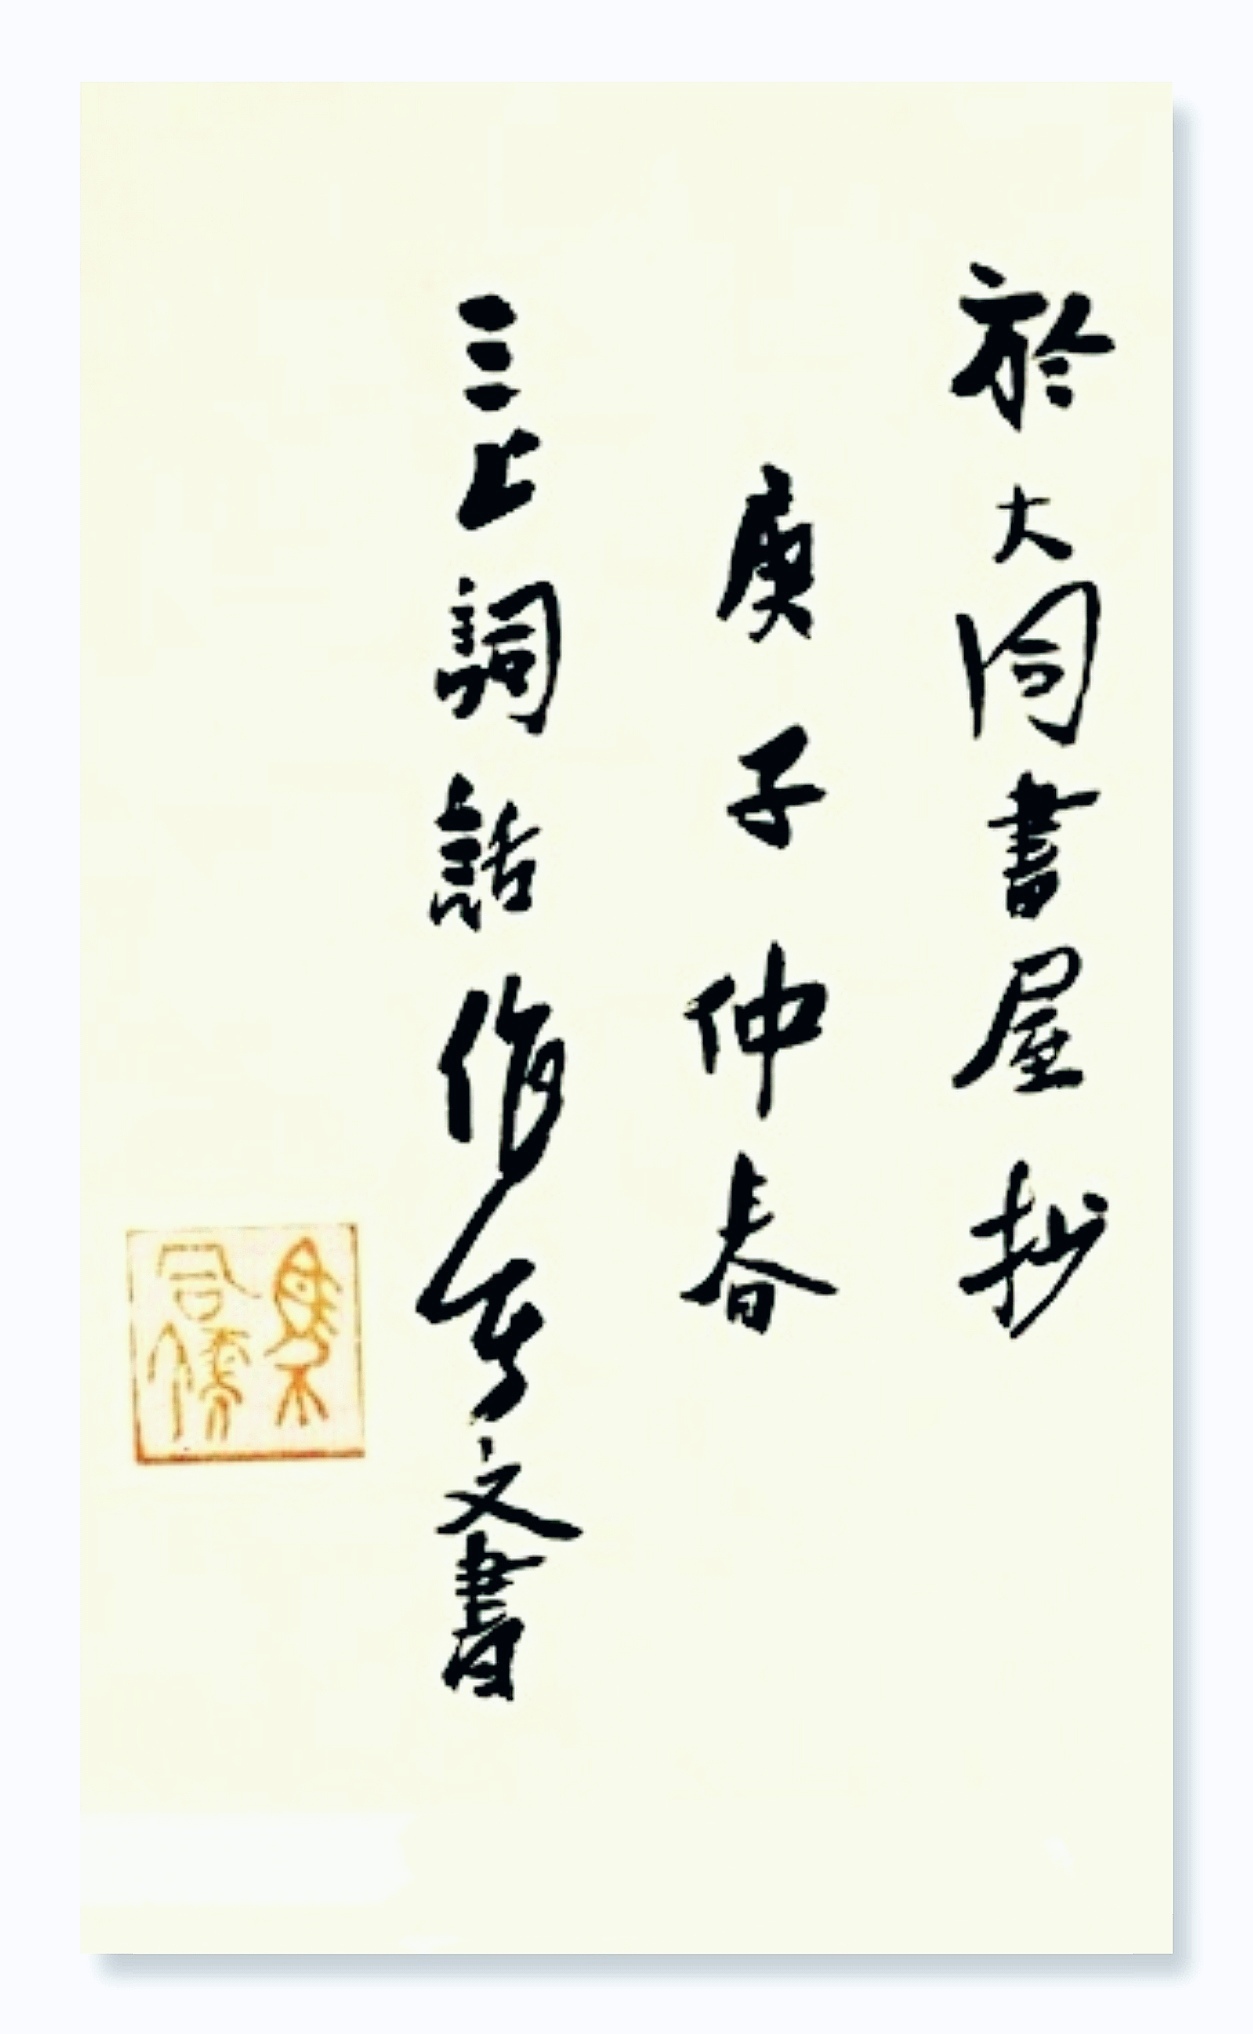 於大同書屋抄
庚子仲春
三上詞話作者文書